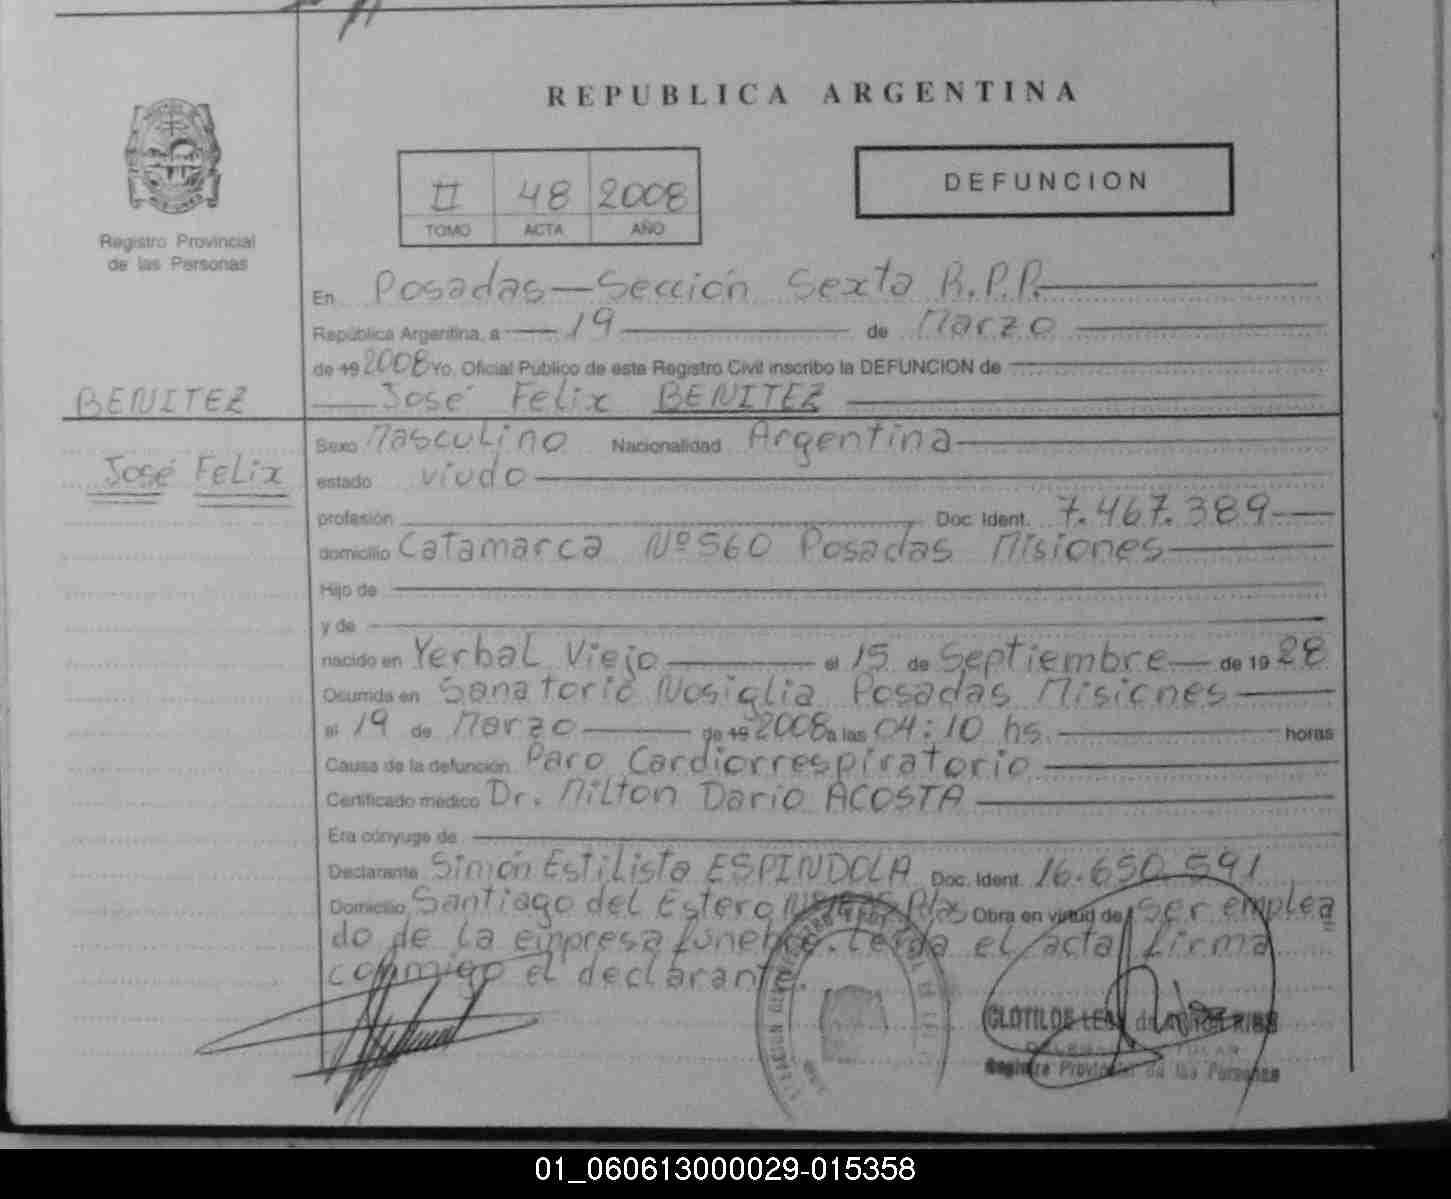 REPUBLICA ARGENTINA
Registro Provincial
de las Personas
II 48 2008
TOMO ACTA AÑO
DEFUNCION
En Posadas—Sección Sexta R.P.P.
República Argentina, a 19 de Marzo
de 19 2008 Yo, Oficial Público de este Registro Civil inscribo la DEFUNCION de
BENITEZ
José Felix BENITEZ
José Felix
Sexo Masculino Nacionalidad Argentina
estado viudo
profesión Doc. Ident. 7.467.389
domicilio Catamarca Nº 560 Posadas Misiones
Hijo de
y de
nacido en Yerbal Viejo el 15 de Septiembre de 19 28
Ocurrida en Sanatorio Nosiglia Posadas Misiones
el 19 de Marzo de 19 2008 a las 04:10 hs. horas
Causa de la defunción Paro Cardiorrespiratorio
Certificado médico Dr. Milton Dario ACOSTA
Era cónyuge de
Declarante Simón Estilista ESPINDOLA Doc. Ident. 16.650.591
Domicilio Santiago del Estero Pdas Obra en virtud de ser emplea
do de la empresa fúnebre. Leida el acta firma
conmigo el declarante.
CLOTILDE
Registro Provincial de las Personas
01_060613000029-015358